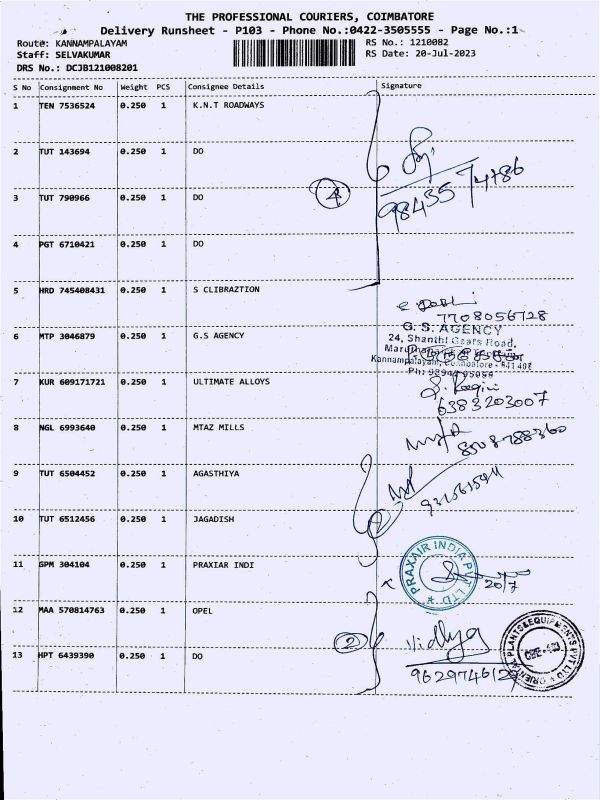 THE PROFESSIONAL COURIERS, COIMBATORE
Delivery Runsheet - P103 - Phone No.:0422-3505555 - Page No.:1
Route: KANNAMPALAYAM
RS No.: 1210082
Staff: SELVAKUMAR
RS Date: 20-Jul-2023
DRS No.: DCJB121008201
S No Consignment No Weight PCS Consignee Details Signature
1 TEN 7536524 0.250 1 K.N.T ROADWAYS
2 TUT 143694 0.250 1 DO
3 TUT 790966 0.250 1 DO
4
98435 74786
4 PGT 6710421 0.250 1 DO
5 HRD 745408431 0.250 1 S CLIBRAZTION
7708056728
6 MTP 3046879 0.250 1 G.S AGENCY
G. S. AGENCY
24, Shanthi Gears Road,
Kannampalayam, Coimbatore - 641 402
7 KUR 609171721 0.250 1 ULTIMATE ALLOYS
6383203007
8 NGL 6993640 0.250 1 MTAZ MILLS
9 TUT 6504452 0.250 1 AGASTHIYA
10 TUT 6512456 0.250 1 JAGADISH
2
11 GPM 304104 0.250 1 PRAXIAR INDI
PRAXAIR INDIA PVT LTD
20/7
12 MAA 570814763 0.250 1 OPEL
2
Vidhya
ORIENTAL PLANTS & EQUIPMENTS PVT LTD
13 HPT 6439390 0.250 1 DO